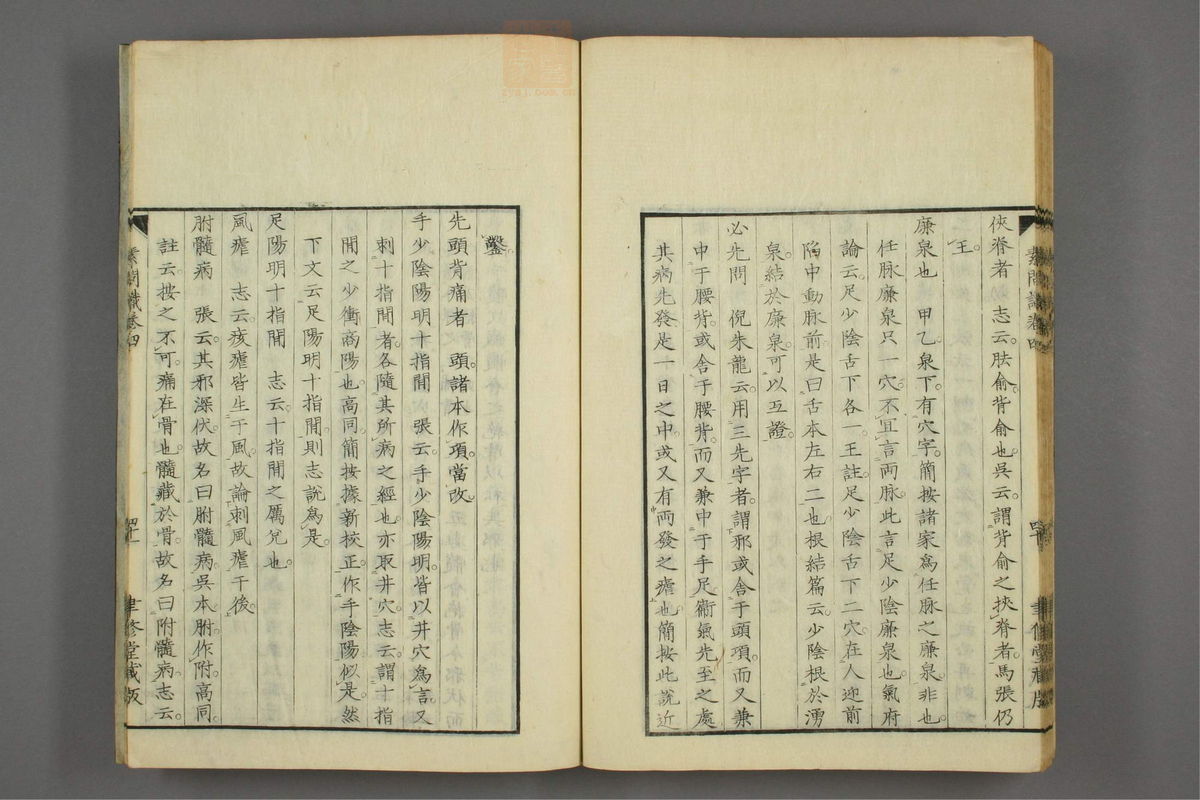 俠脊者 志云肤俞背俞也吳云謂背俞之挾脊者馬張仍
王
廉泉也 甲乙泉下有穴字簡按諸家爲任脈之廉泉非也
任脈廉泉只一穴不宜言兩脈此言足少陰廉泉也氣府
論云足少陰舌下各一王註足少陰舌下二穴在人迎前
陷中動脈前是曰舌本左右二也根結篇云少陰根於湧
泉結於廉泉可以互證
必先問 倪朱龍云用三先字者謂邪或舍于頭項而又兼
中于腰背或舍于腰背而又兼中于手足衞氣先至之處
其病先發是一日之中或又有兩發之瘧也簡按此說近
鑿
先頭背痛者 頭諸本作項當改
手少陰陽明十指間 張云手少陰陽明皆以井穴爲言又
刺十指間者各隨其所病之經也亦取井穴志云謂十指
間之少衝商陽也高同簡按據新校正作手陰陽似是然
下文云足陽明十指間則志說爲是
足陽明十指間 志云十指間之厲兌也
風瘧 志云痎瘧皆生于風故論刺風瘧于後
胕髓病 張云其邪深伏故名曰胕髓病吳本胕作附高同
註云按之不可痛在骨也髓藏於骨故名曰附髓病志云
素問識卷四
聿修堂藏版